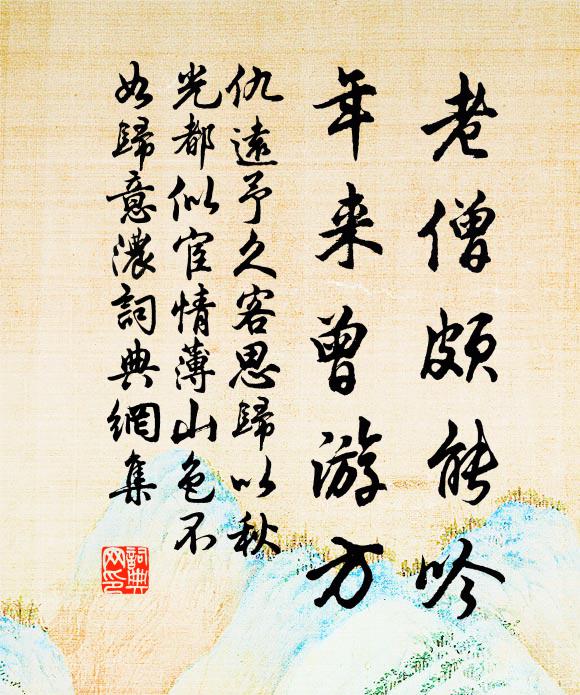 老僧頗能吟
年来曾游方
仇遠予久客思歸以秋
光都似宦情薄山色不
如歸意濃詞典網集
詞典网印